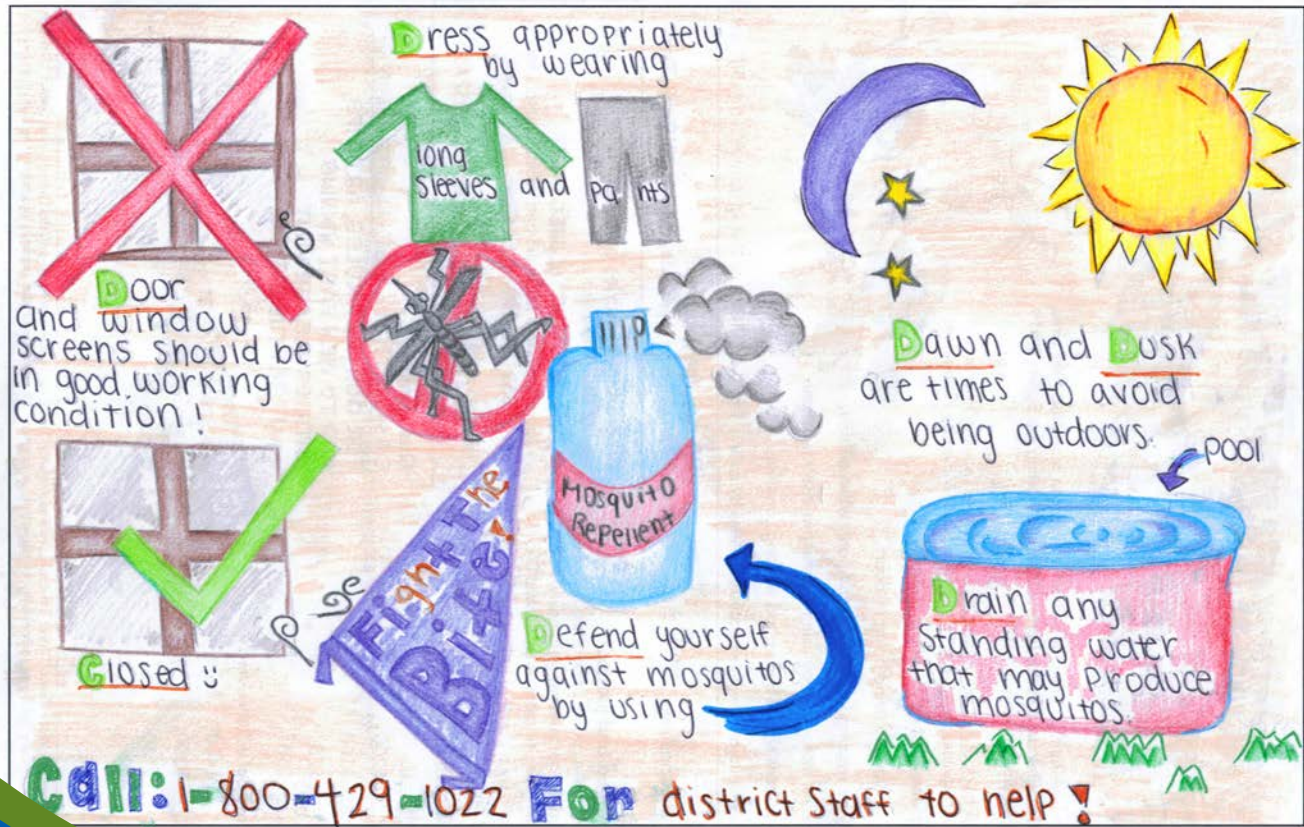 Dress appropriately
by wearing
long
sleeves and pants
Door
and window
screens should be
in good working
condition!
Closed
Fight the
Bite!
Mosquito
Repellent
Defend yourself
against mosquitos
by using
Dawn and Dusk
are times to avoid
being outdoors.
pool
Drain any
standing water
that may produce
mosquitos.
Call: 1-800-429-1022 For district staff to help!